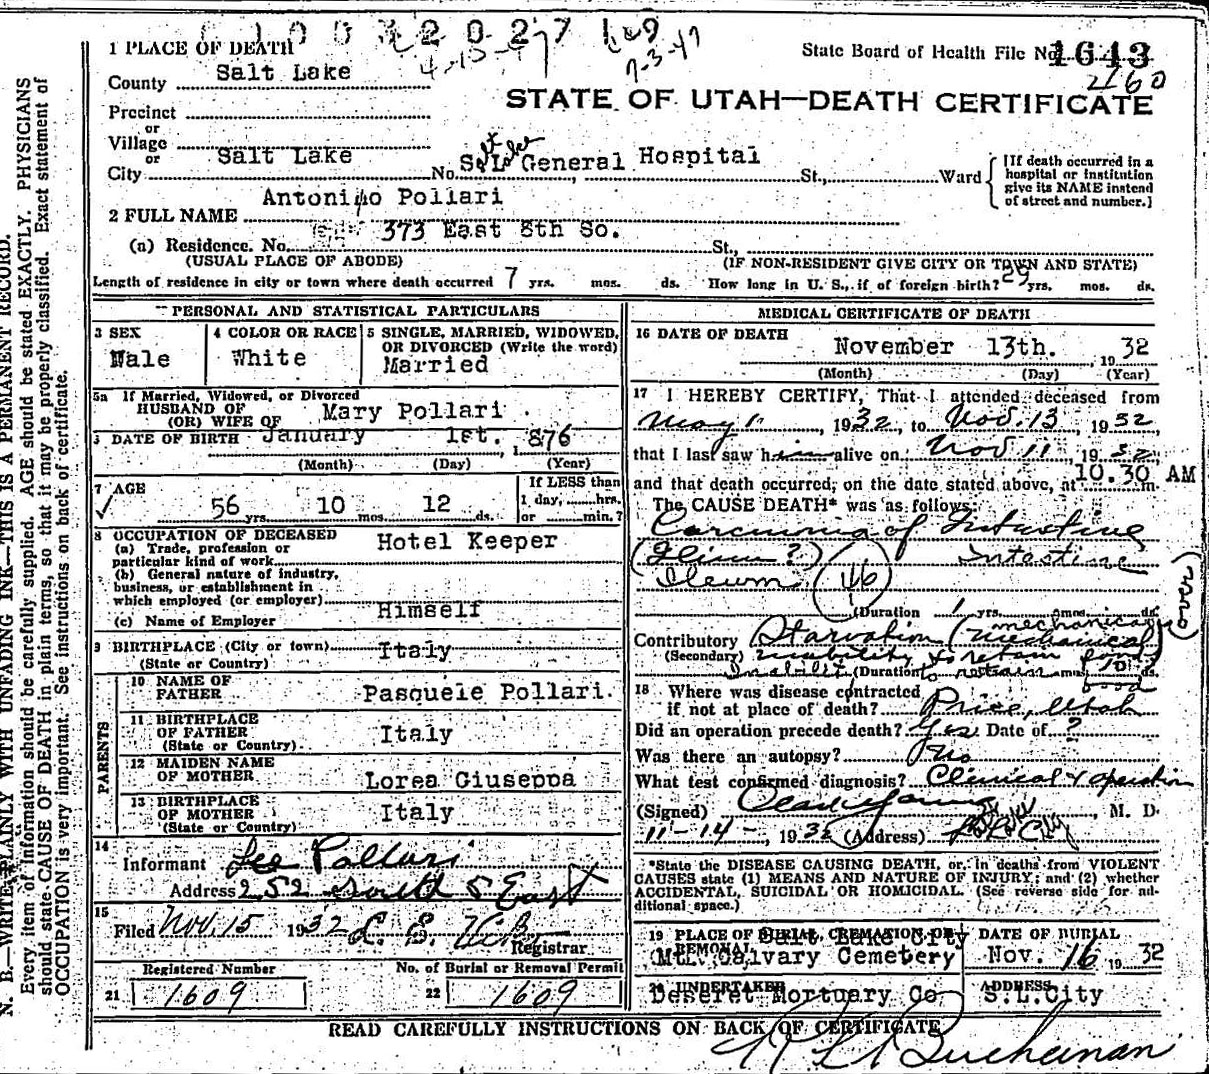 1 PLACE OF DEATH
4-15-47
7-3-47
State Board of Health File No. 1643
2460
County Salt Lake
STATE OF UTAH—DEATH CERTIFICATE
Precinct
or
Village
or
City Salt Lake No. S. L. General Hospital St., Ward
Salt Lake
[If death occurred in a hospital or institution give its NAME instead of street and number.]
2 FULL NAME Antonino Pollari
(a) Residence. No. 373 East 8th So. St.,
(USUAL PLACE OF ABODE) (IF NON-RESIDENT GIVE CITY OR TOWN AND STATE)
Length of residence in city or town where death occurred 7 yrs. mos. ds. How long in U. S., if of foreign birth? 29 yrs. mos. ds.
PERSONAL AND STATISTICAL PARTICULARS
3 SEX Male
4 COLOR OR RACE White
5 SINGLE, MARRIED, WIDOWED, OR DIVORCED (Write the word) Married
5a If Married, Widowed, or Divorced
HUSBAND OF
(OR) WIFE OF Mary Pollari
6 DATE OF BIRTH January 1st. , 1876
(Month) (Day) (Year)
7 AGE
56 yrs. 10 mos. 12 ds.
If LESS than 1 day, hrs. or min.?
8 OCCUPATION OF DECEASED
(a) Trade, profession or particular kind of work Hotel Keeper
(b) General nature of industry, business, or establishment in which employed (or employer)
(c) Name of Employer Himself
9 BIRTHPLACE (City or town) Italy
(State or Country)
PARENTS
10 NAME OF FATHER Pasquele Pollari.
11 BIRTHPLACE OF FATHER Italy
(State or Country)
12 MAIDEN NAME OF MOTHER Lorea Giuseppa
13 BIRTHPLACE OF MOTHER Italy
(State or Country)
14
Informant Lee Pollari
Address 252 South 5 East
15
Filed Nov. 15 1932 L. E.
Registrar
Registered Number
21 1609
No. of Burial or Removal Permit
22 1609
MEDICAL CERTIFICATE OF DEATH
16 DATE OF DEATH
November 13th. , 1932
(Month) (Day) (Year)
17 I HEREBY CERTIFY, That I attended deceased from
May 1, 1932, to Nov. 13, 1932,
that I last saw him alive on Nov 11, 1932,
and that death occurred, on the date stated above, at 10.30 AM m.
The CAUSE DEATH* was as follows:
Carcinoma of Intestine
(Ilium?) Intestine
Ileum 46
(Duration 1 yrs. mos. ds.
mechanical
Contributory Starvation (mechanical)
(Secondary) inability to retain food
Inability (Duration to retain mos. 10 ds.
food
18 Where was disease contracted
if not at place of death? Price, Utah
Did an operation precede death? Yes Date of ?
Was there an autopsy? No
What test confirmed diagnosis? Clinical & operation
(Signed) , M. D.
11-14-, 1932 (Address) S. L. City
*State the DISEASE CAUSING DEATH, or, in deaths from VIOLENT
CAUSES state (1) MEANS AND NATURE OF INJURY; and (2) whether
ACCIDENTAL, SUICIDAL OR HOMICIDAL. (See reverse side for ad-
ditional space.)
19 PLACE OF BURIAL, CREMATION OR REMOVAL
Salt Lake City
Mt. Calvary Cemetery
DATE OF BURIAL
Nov. 16 1932
20 UNDERTAKER
Deseret Mortuary Co
ADDRESS
S.L.City
READ CAREFULLY INSTRUCTIONS ON BACK OF CERTIFICATE
Buchanan
N. B.—WRITE PLAINLY WITH UNFADING INK—THIS IS A PERMANENT RECORD.
Every item of information should be carefully supplied. AGE should be stated EXACTLY. PHYSICIANS
should state CAUSE OF DEATH in plain terms, so that it may be properly classified. Exact statement of
OCCUPATION is very important. See instructions on back of certificate.